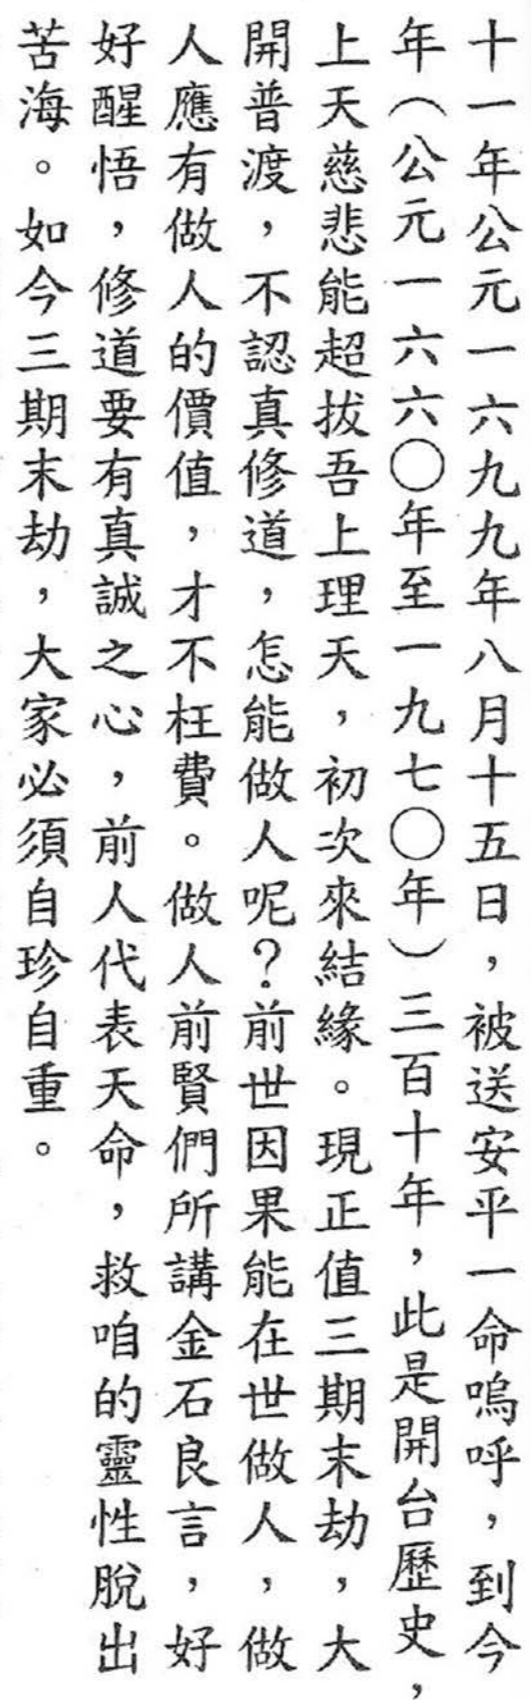 十一年公元一六九九年八月十五日，被送安平一命嗚呼，到今
年（公元一六六〇年至一九七〇年）三百十年，此是開台歷史，
上天慈悲能超拔吾上理天，初次來結緣。現正值三期末劫，大
開普渡，不認真修道，怎能做人呢？前世因果能在世做人，做
人應有做人的價值，才不枉費。做人前賢們所講金石良言，好
好醒悟，修道要有真誠之心，前人代表天命，救咱的靈性脫出
苦海。如今三期末劫，大家必須自珍自重。